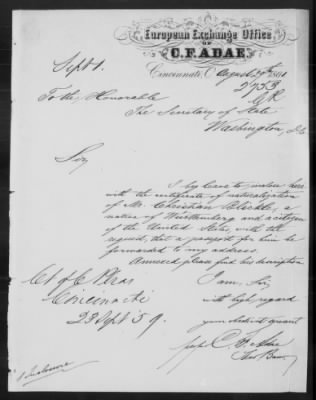 European Exchange Office
OF
C. F. ADAE.
Sept 1.
Cincinnati, O. August 29th 1861
2753
To the, Honorable
The Secretary of State
Washington, D.C.
Sir,
I beg leave to inclose here
with the certificate of naturalization
of Mr. Christian
native of Württemberg and a citizen
of the United States, with the
request, that a passport for him be
forwarded to my address.
Annexed please find his description
I am, Sir
with high regard
your obedient servant
Ct of C Pleas
Cincinnati
23 Sept 59.
1 Inclosure
C. F. Adae